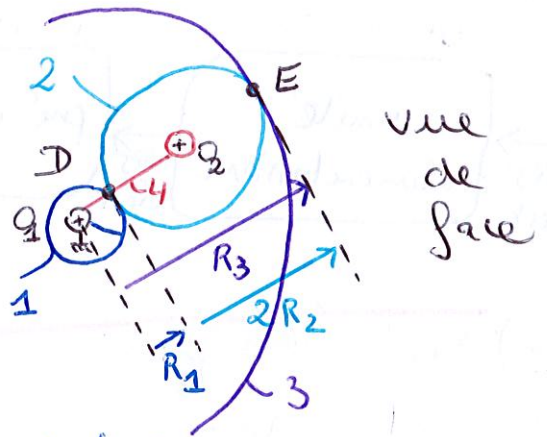 2
E
D
O2
4
O1
1
R3
2R2
R1
3
vue
de
face